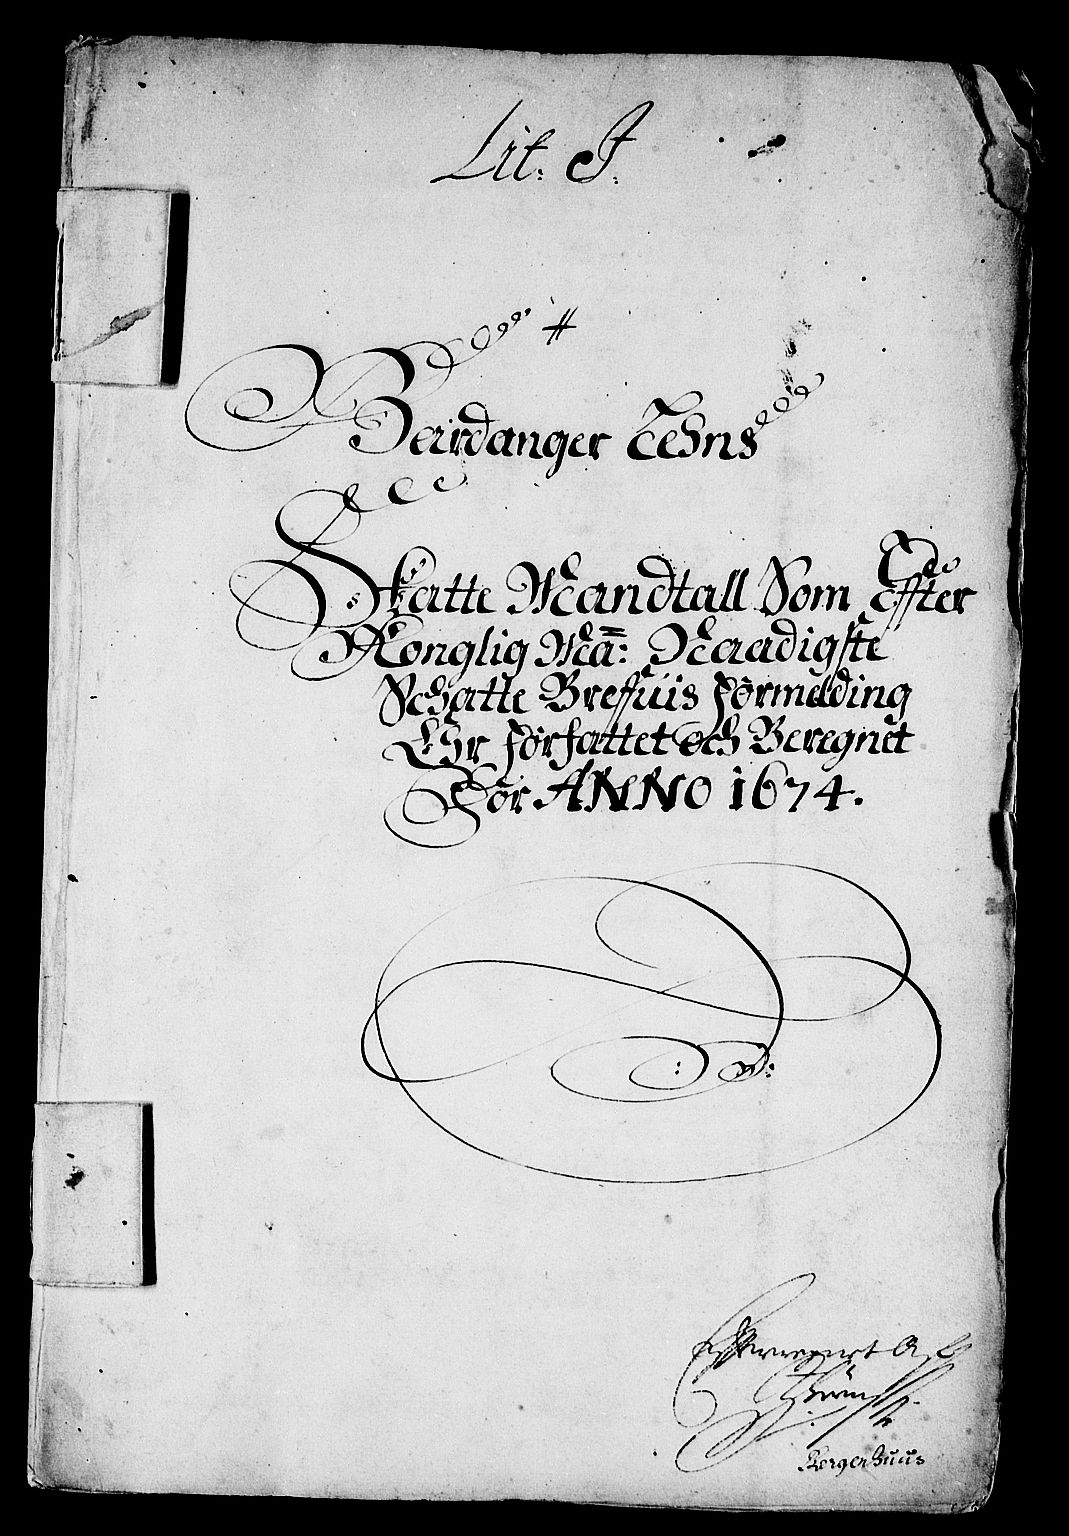 Lit: J:
Hardanger Lehns
Skatte Mandtall Som Effter
Konglig Ma: Naadigste
Schatte Breffuis formelding
Ehr forfattet och Beregnet
For ANNO 1674.
Bergenhuus